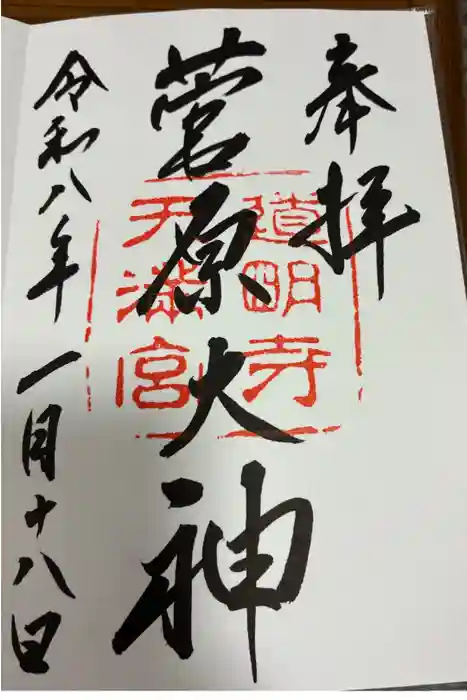 奉拝
菅原大神
道明寺
天満宮
令和八年一月十八日